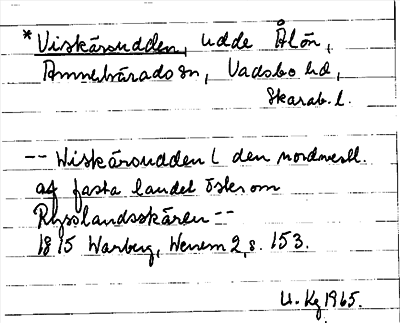 *Viskärsudden, udde Ålön,
Amnehärads sn, Vadsbo hd,
Skarab. l.
-- Wiskärsudden ( den nordvestl.
af fasta landet öster om
Rysslandsskären --
1815 Warberg, Wenern 2, s. 153.
U. Kg 1965.